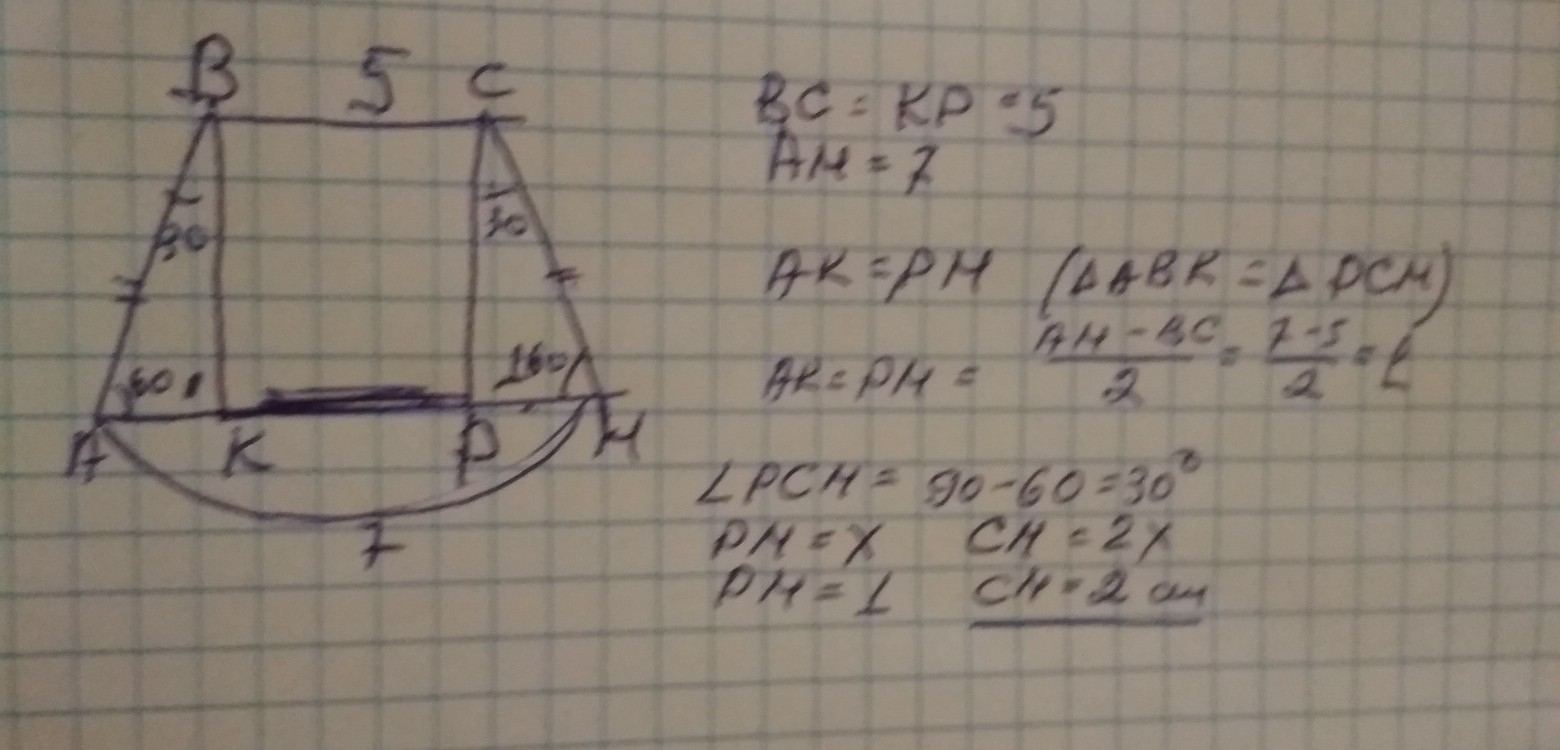 B 5 C
30 30
60 60
A K P H
7
BC = KP = 5
AH = 7
AK = PH (ΔABK = ΔPCH)
AK = PH = (AH - BC)/2 = (7-5)/2 = 1
∠PCH = 90-60=30°
PH = x CH = 2x
PH = 1 CH = 2 см